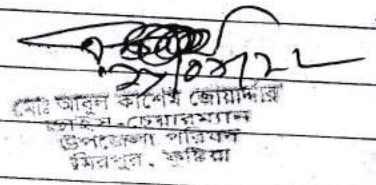 ২১/০৩/২২
মোঃ আবুল কাশেম জোয়ার্দ্দার
ভাইস-চেয়ারম্যান
উপজেলা পরিষদ
মিরপুর, কুষ্টিয়া